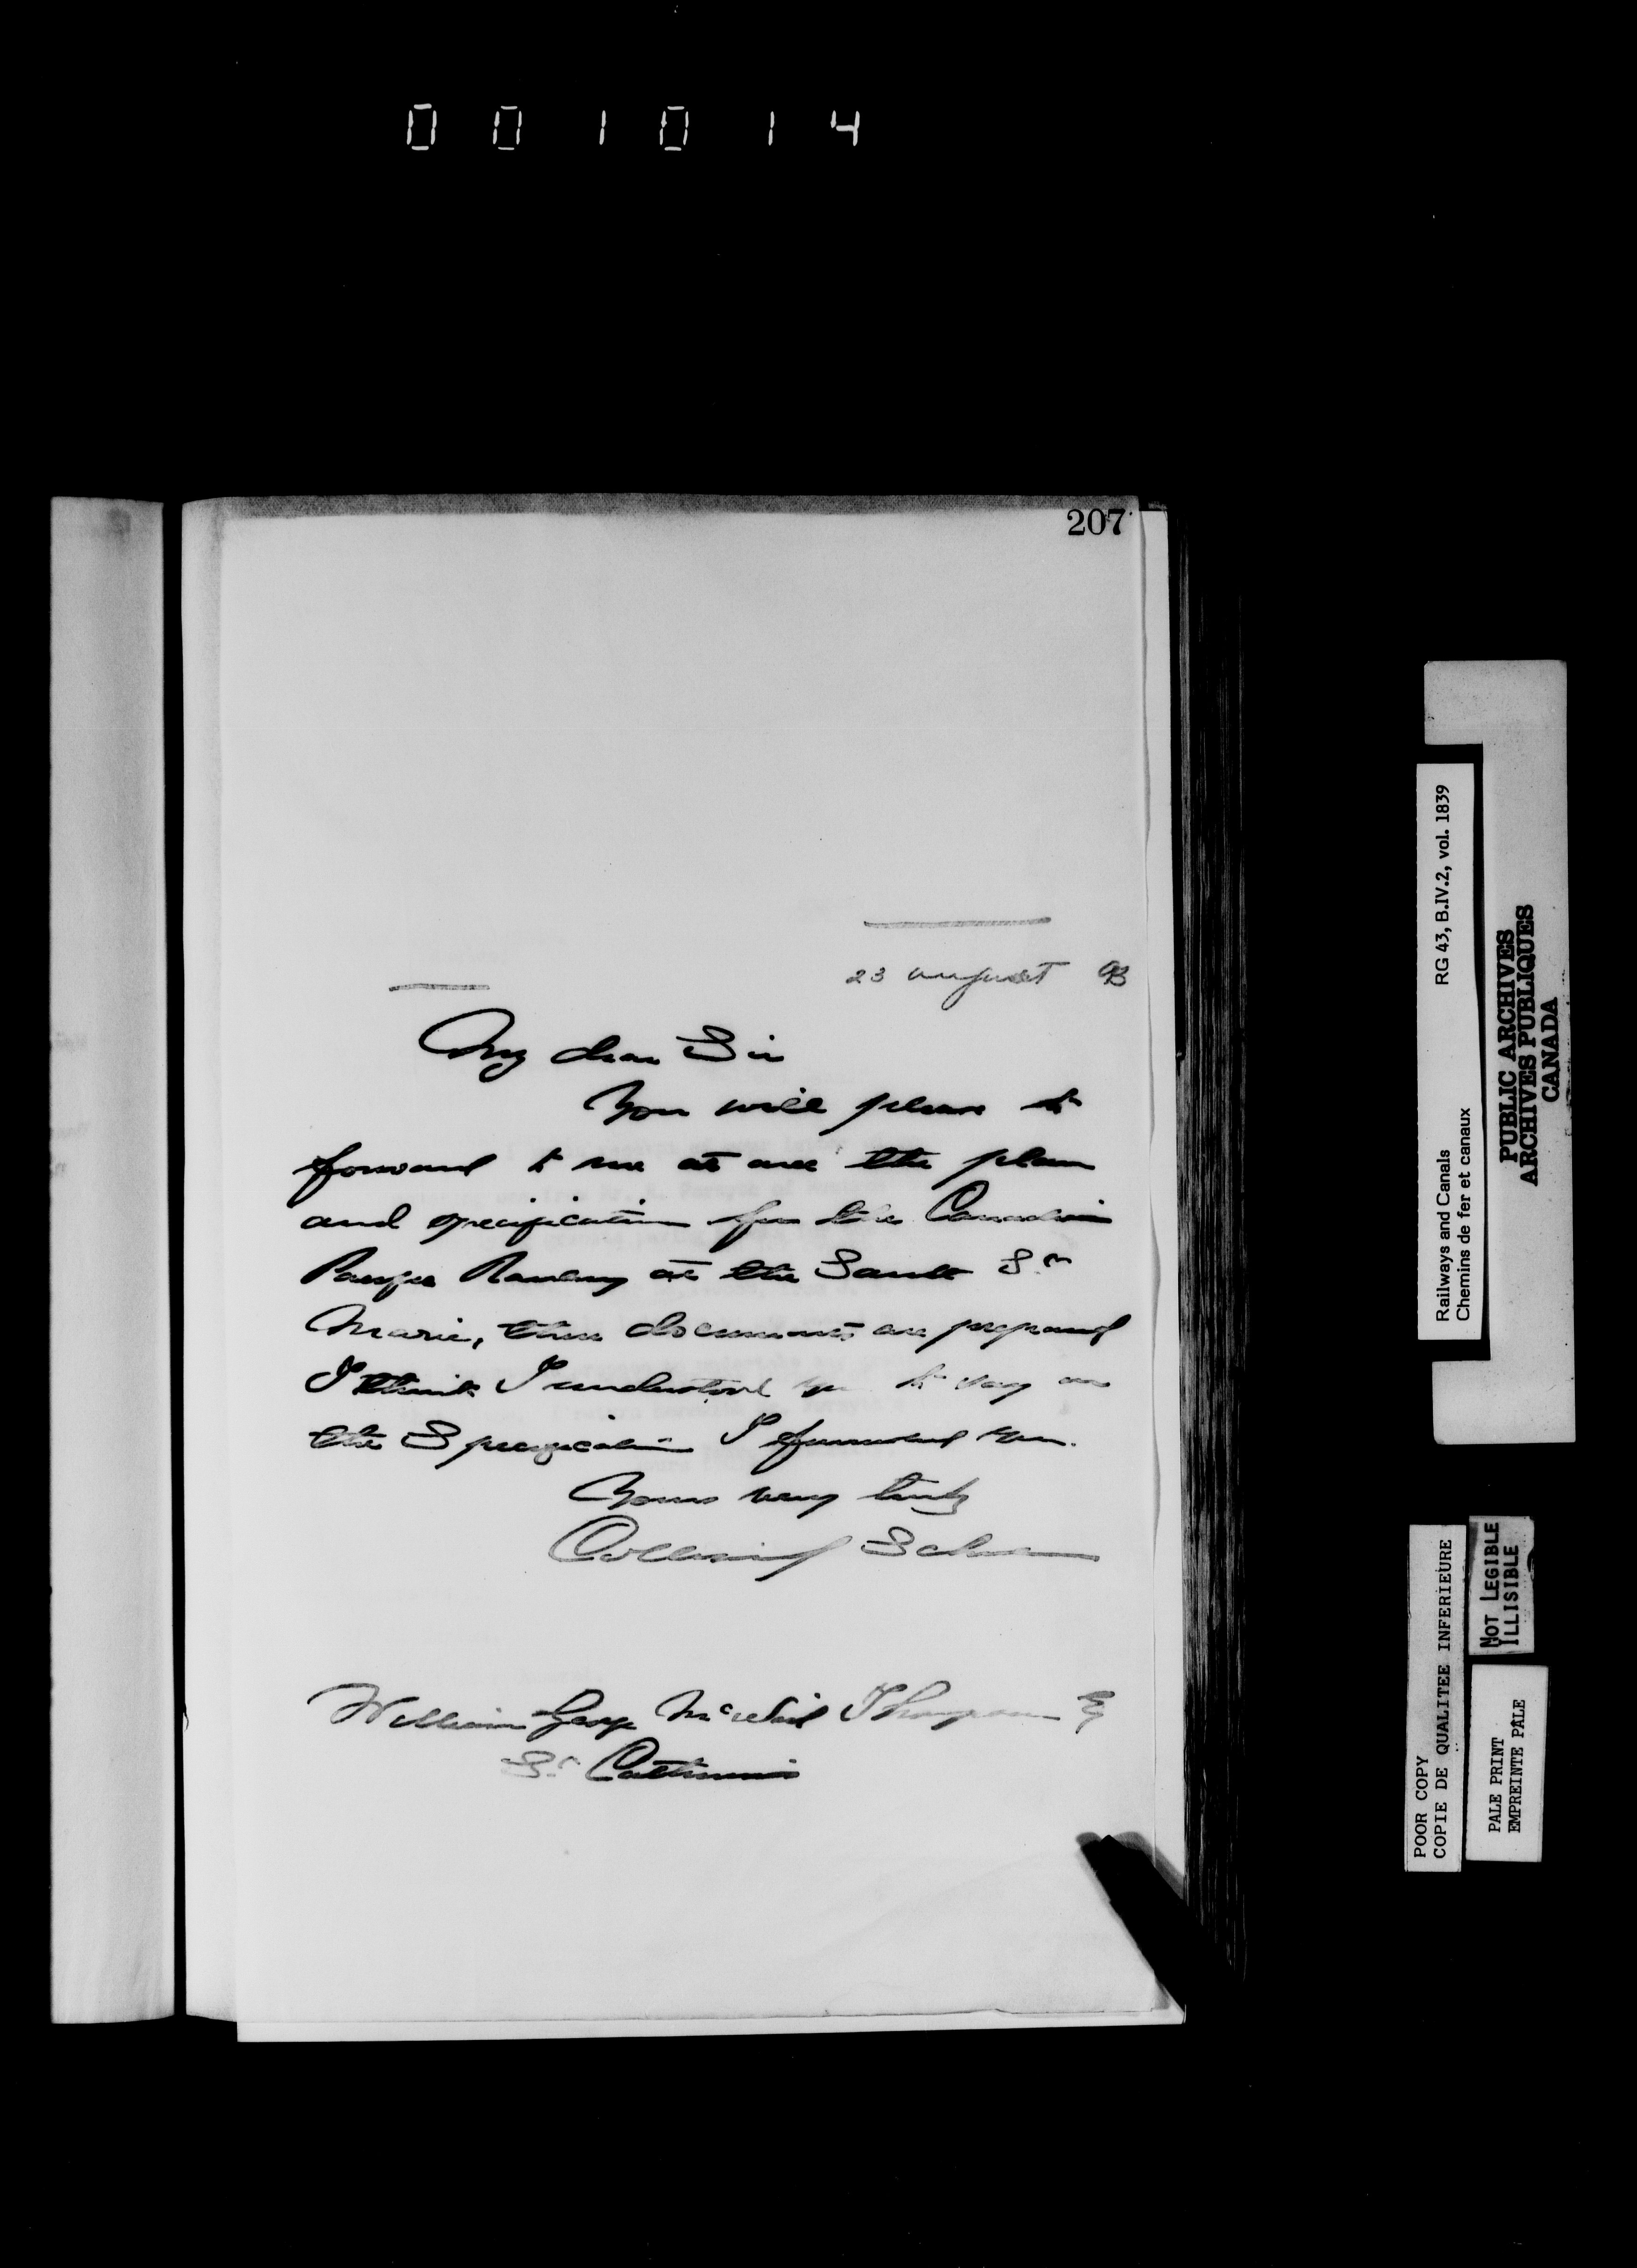 001014
207
23 August 93
My dear Sir
You will please to
forward to me at once the plan
and specification for the Canadian
Pacific Railway at the Sault St
Marie, these documents are prepared
I think I understood you to say on
the Specification I forwarded you.
Yours very truly
Collingwood Schreiber
William George McNeill Thompson Esq
St. Catharines
Railways and Canals
Chemins de fer et canaux
RG 43, B.IV.2, vol. 1839
PUBLIC ARCHIVES
ARCHIVES PUBLIQUES
CANADA
POOR COPY
COPIE DE QUALITEE INFERIEURE
NOT LEGIBLE
ILLISIBLE
PALE PRINT
EMPREINTE PÂLE